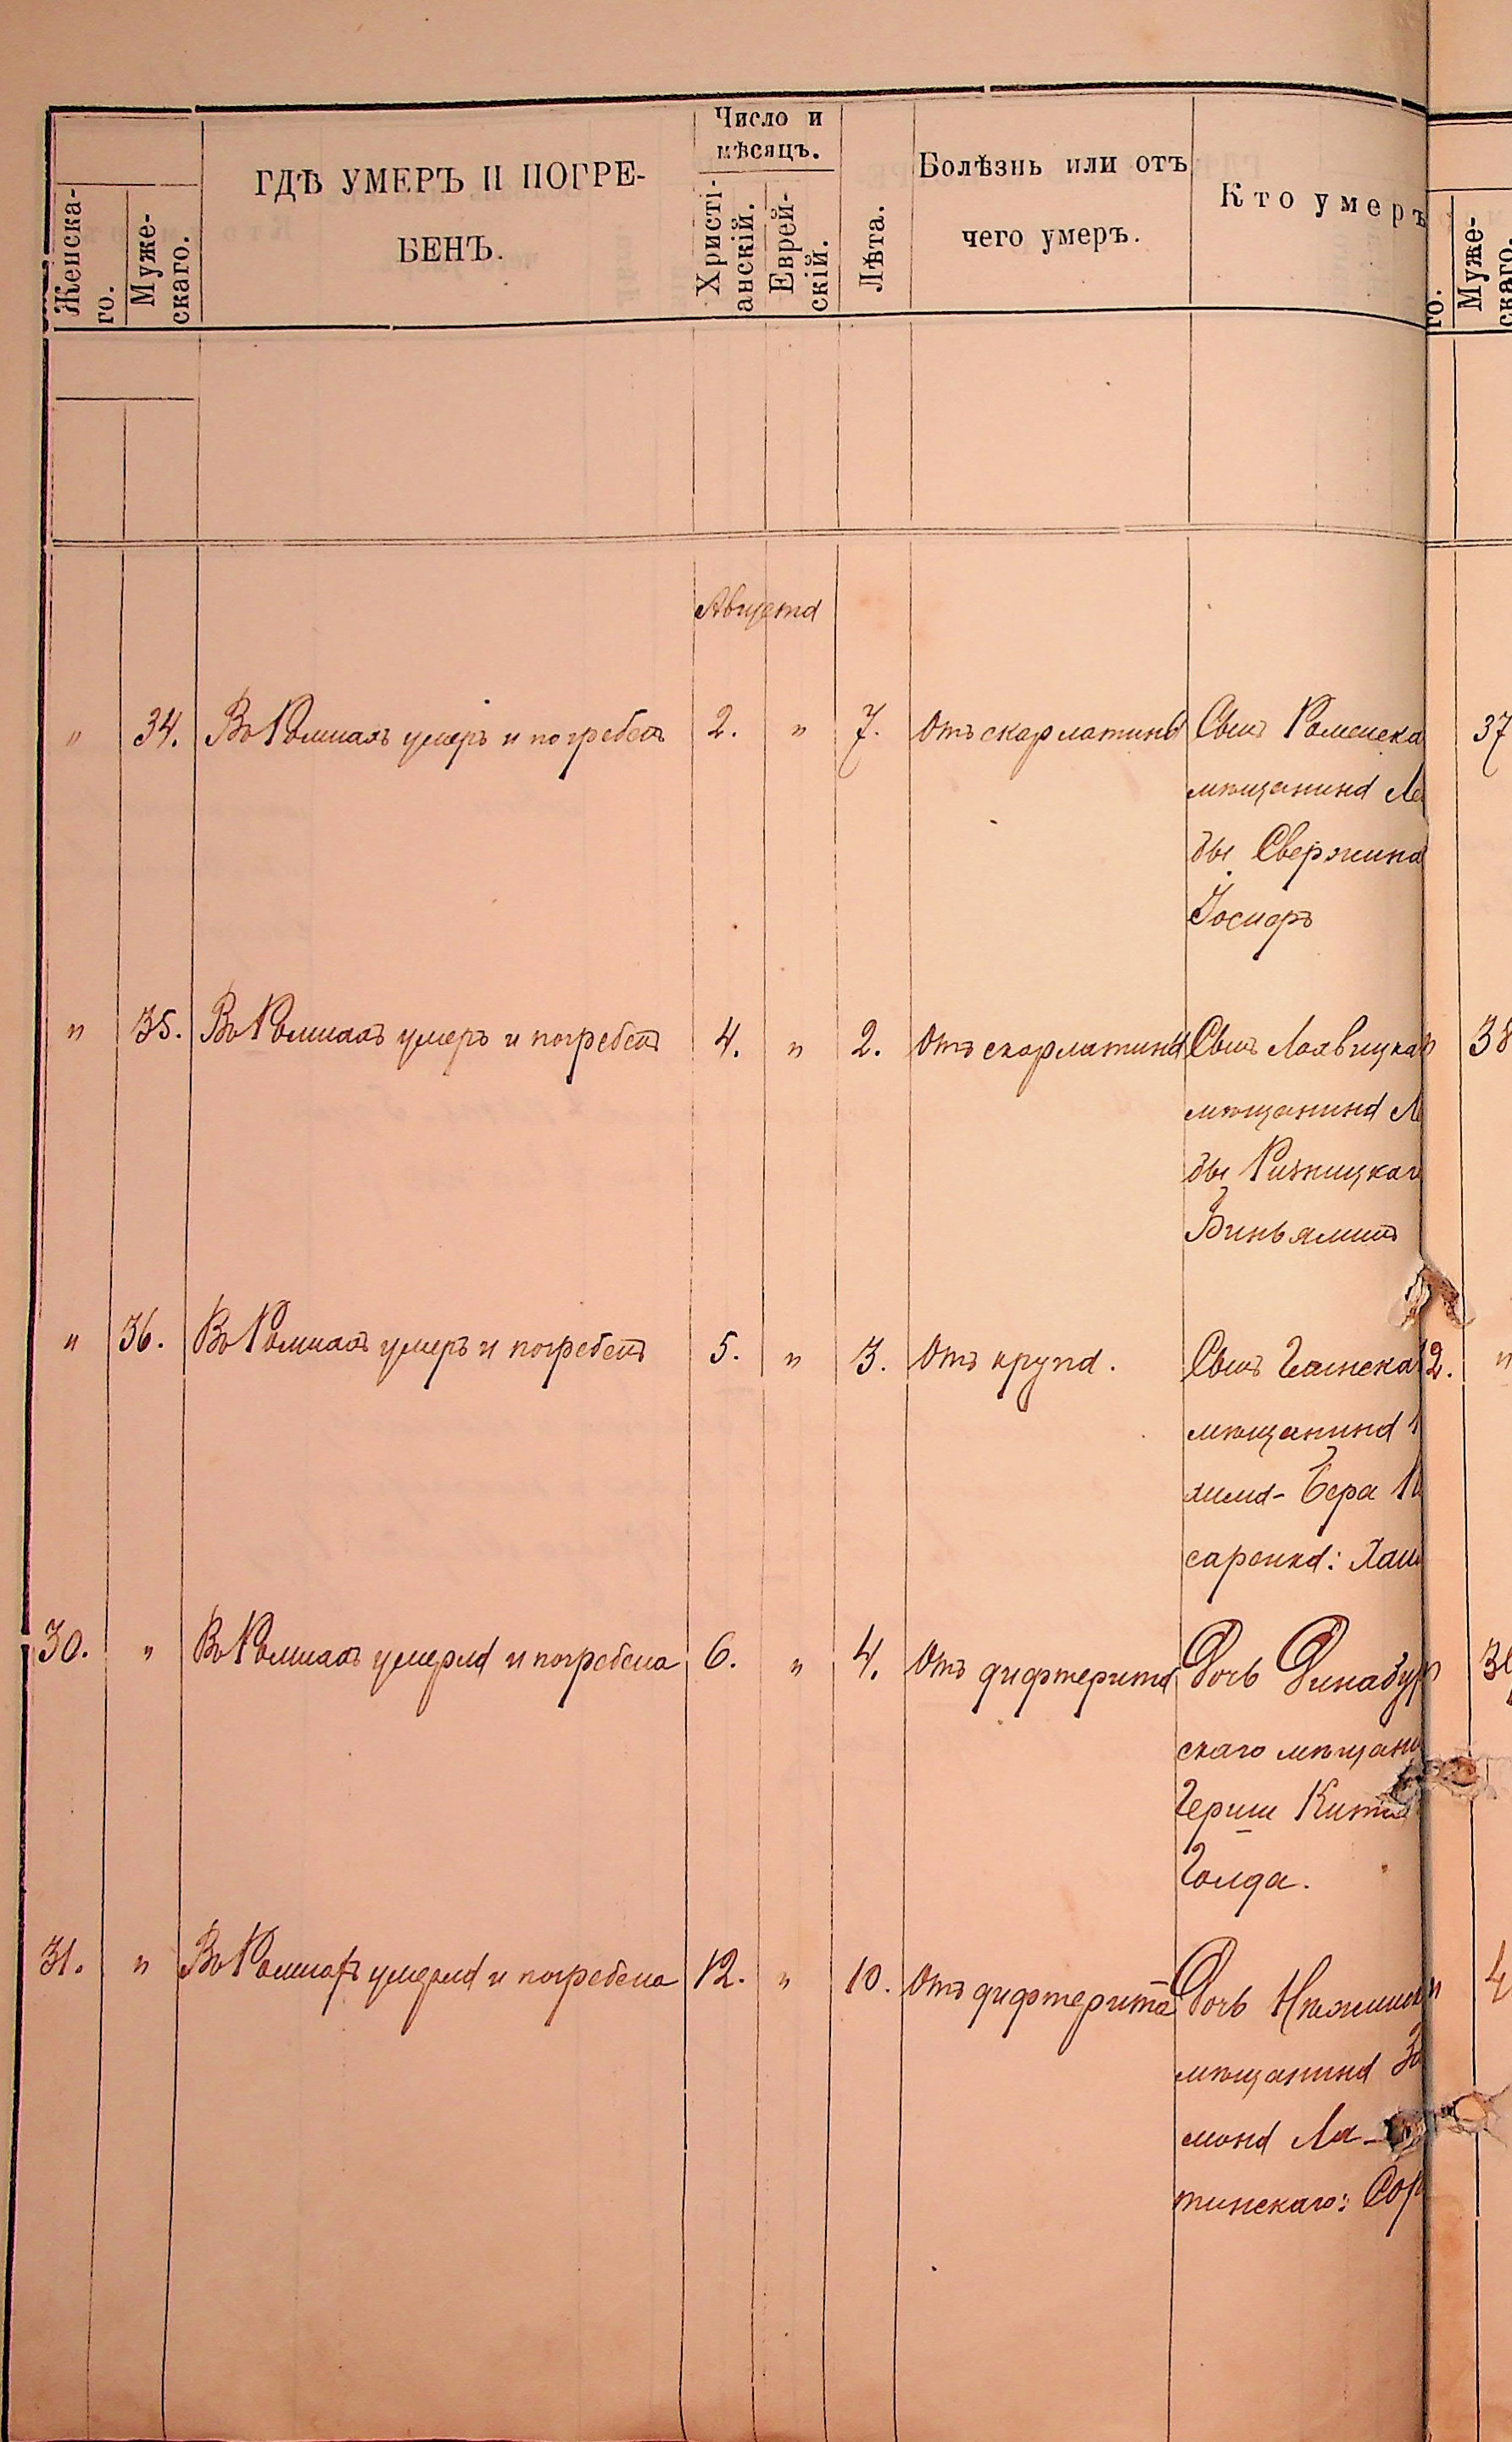 Женска-
го.
Муже-
скаго.
ГДѢ УМЕРЪ И ПОГРЕ-
БЕНЪ.
Число и
мѣсяцъ.
Христі-
анскій.
Еврей-
скій.
Лѣта.
Болѣзнь или отъ
чего умеръ.
Кто умеръ
го.
Муже-
скаго.
Августа
" 34. Въ Ромнахъ умеръ и погребенъ 2. " 7. Отъ скарлатины Сынъ Роменска
мѣщанина Ле
бы Свержина
Іосифъ
37
" 35. Въ Ромнахъ умеръ и погребенъ 4. " 2. Отъ скарлатины Сынъ Лохвицка
мѣщанина Л
бы Ризницкаг
Биньяминъ
" 38
" 36. Въ Ромнахъ умеръ и погребенъ 5. " 3. Отъ крупа. Сынъ
мѣщанина
хима-Бера
саренка: Хаи
2. "
30. " Въ Ромнахъ умерла и погребена 6. " 4. Отъ дифтерита Дочь Динабур
скаго мѣщани
Герши
Голда.
" 39
31. " Въ Ромнахъ умерла и погребена 12. " 10. Отъ дифтерита Дочь Нѣжинс
мѣщанина За
мона Ля-
тинскаго: Сор
" 4